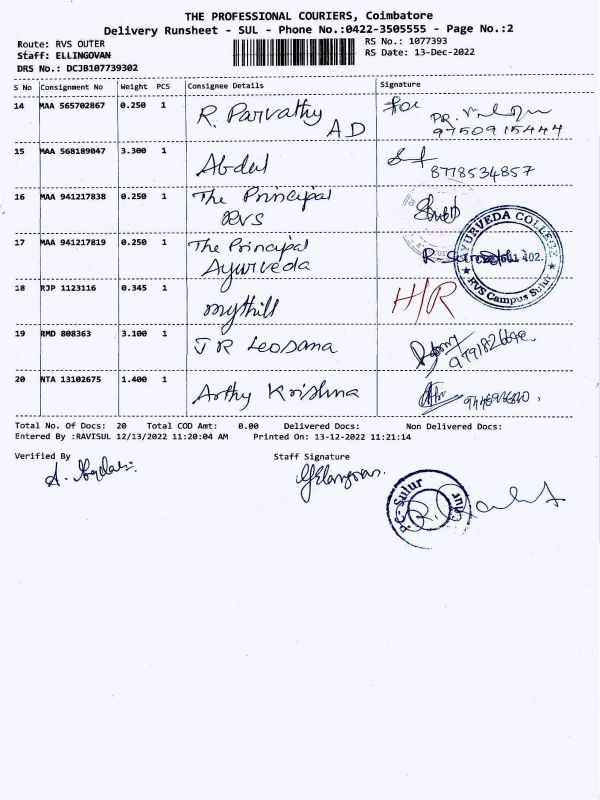 THE PROFESSIONAL COURIERS, Coimbatore
Delivery Runsheet - SUL - Phone No.:0422-3505555 - Page No.:2
Route: RVS OUTER
RS No.: 1077393
Staff: ELLINGOVAN
RS Date: 13-Dec-2022
DRS No.: DCJB107739302
S No Consignment No Weight PCS Consignee Details Signature
14 MAA 565702867 0.250 1 R. Parvathy AD for
PR.
9750915444
15 MAA 568189047 3.300 1 Abdul
8778534857
16 MAA 941217838 0.250 1 The Principal
RVS
17 MAA 941217819 0.250 1 The Principal
Ayurveda
AYURVEDA COLLEGE
641 402.
★ RVS Campus Sulur ★
18 RJP 1123116 0.345 1 mythili H/R
19 RMD 808363 3.100 1 J R Leosana
20 NTA 13102675 1.400 1 Arthy Krishna
Total No. Of Docs: 20 Total COD Amt: 0.00 Delivered Docs: Non Delivered Docs:
Entered By :RAVISUL 12/13/2022 11:20:04 AM Printed On: 13-12-2022 11:21:14
Verified By Staff Signature
PC-Sulur